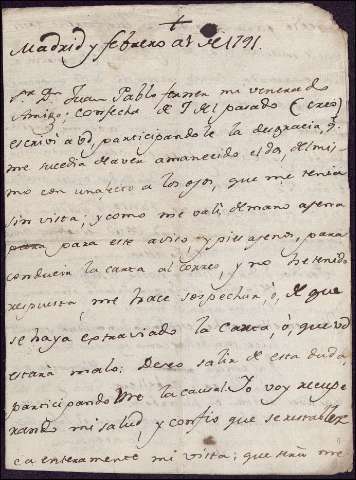 +
Madrid y febrero a 1 de 1791.
Sr. Dn. Juan Pablo forner mi venerado
Amigo; con fecha de 7 del pasado (creo)
escrivi a vd, participandole la desgracia, q.
me sucedia de aver amanecido el dos, del mis
mo con un afecto a los ojos, que me tenia
sin vista; y como me valí, de mano agena
para para este aviso, y pies agenos, para
conducir la carta al correo, y no he tenido
respuesta, me hace sospechar, ò, de que
se haya extraviado la carta, ò, que vd
estarà malo: Deseo salir de esta duda,
participandome la causa. Yo voy recupe
rando mi salud, y confio que se restablez
ca enteramente mi vista; que seria me